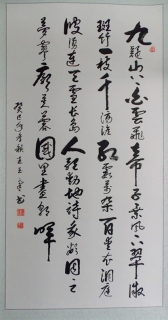 九嶷山上白雲飛帝子乘風下翠微
斑竹一枝千滴淚紅霞萬朵百重衣洞庭
波涌連天雪長島人歌動地詩我欲因之
夢寥廓芙蓉國里盡朝暉
癸巳年